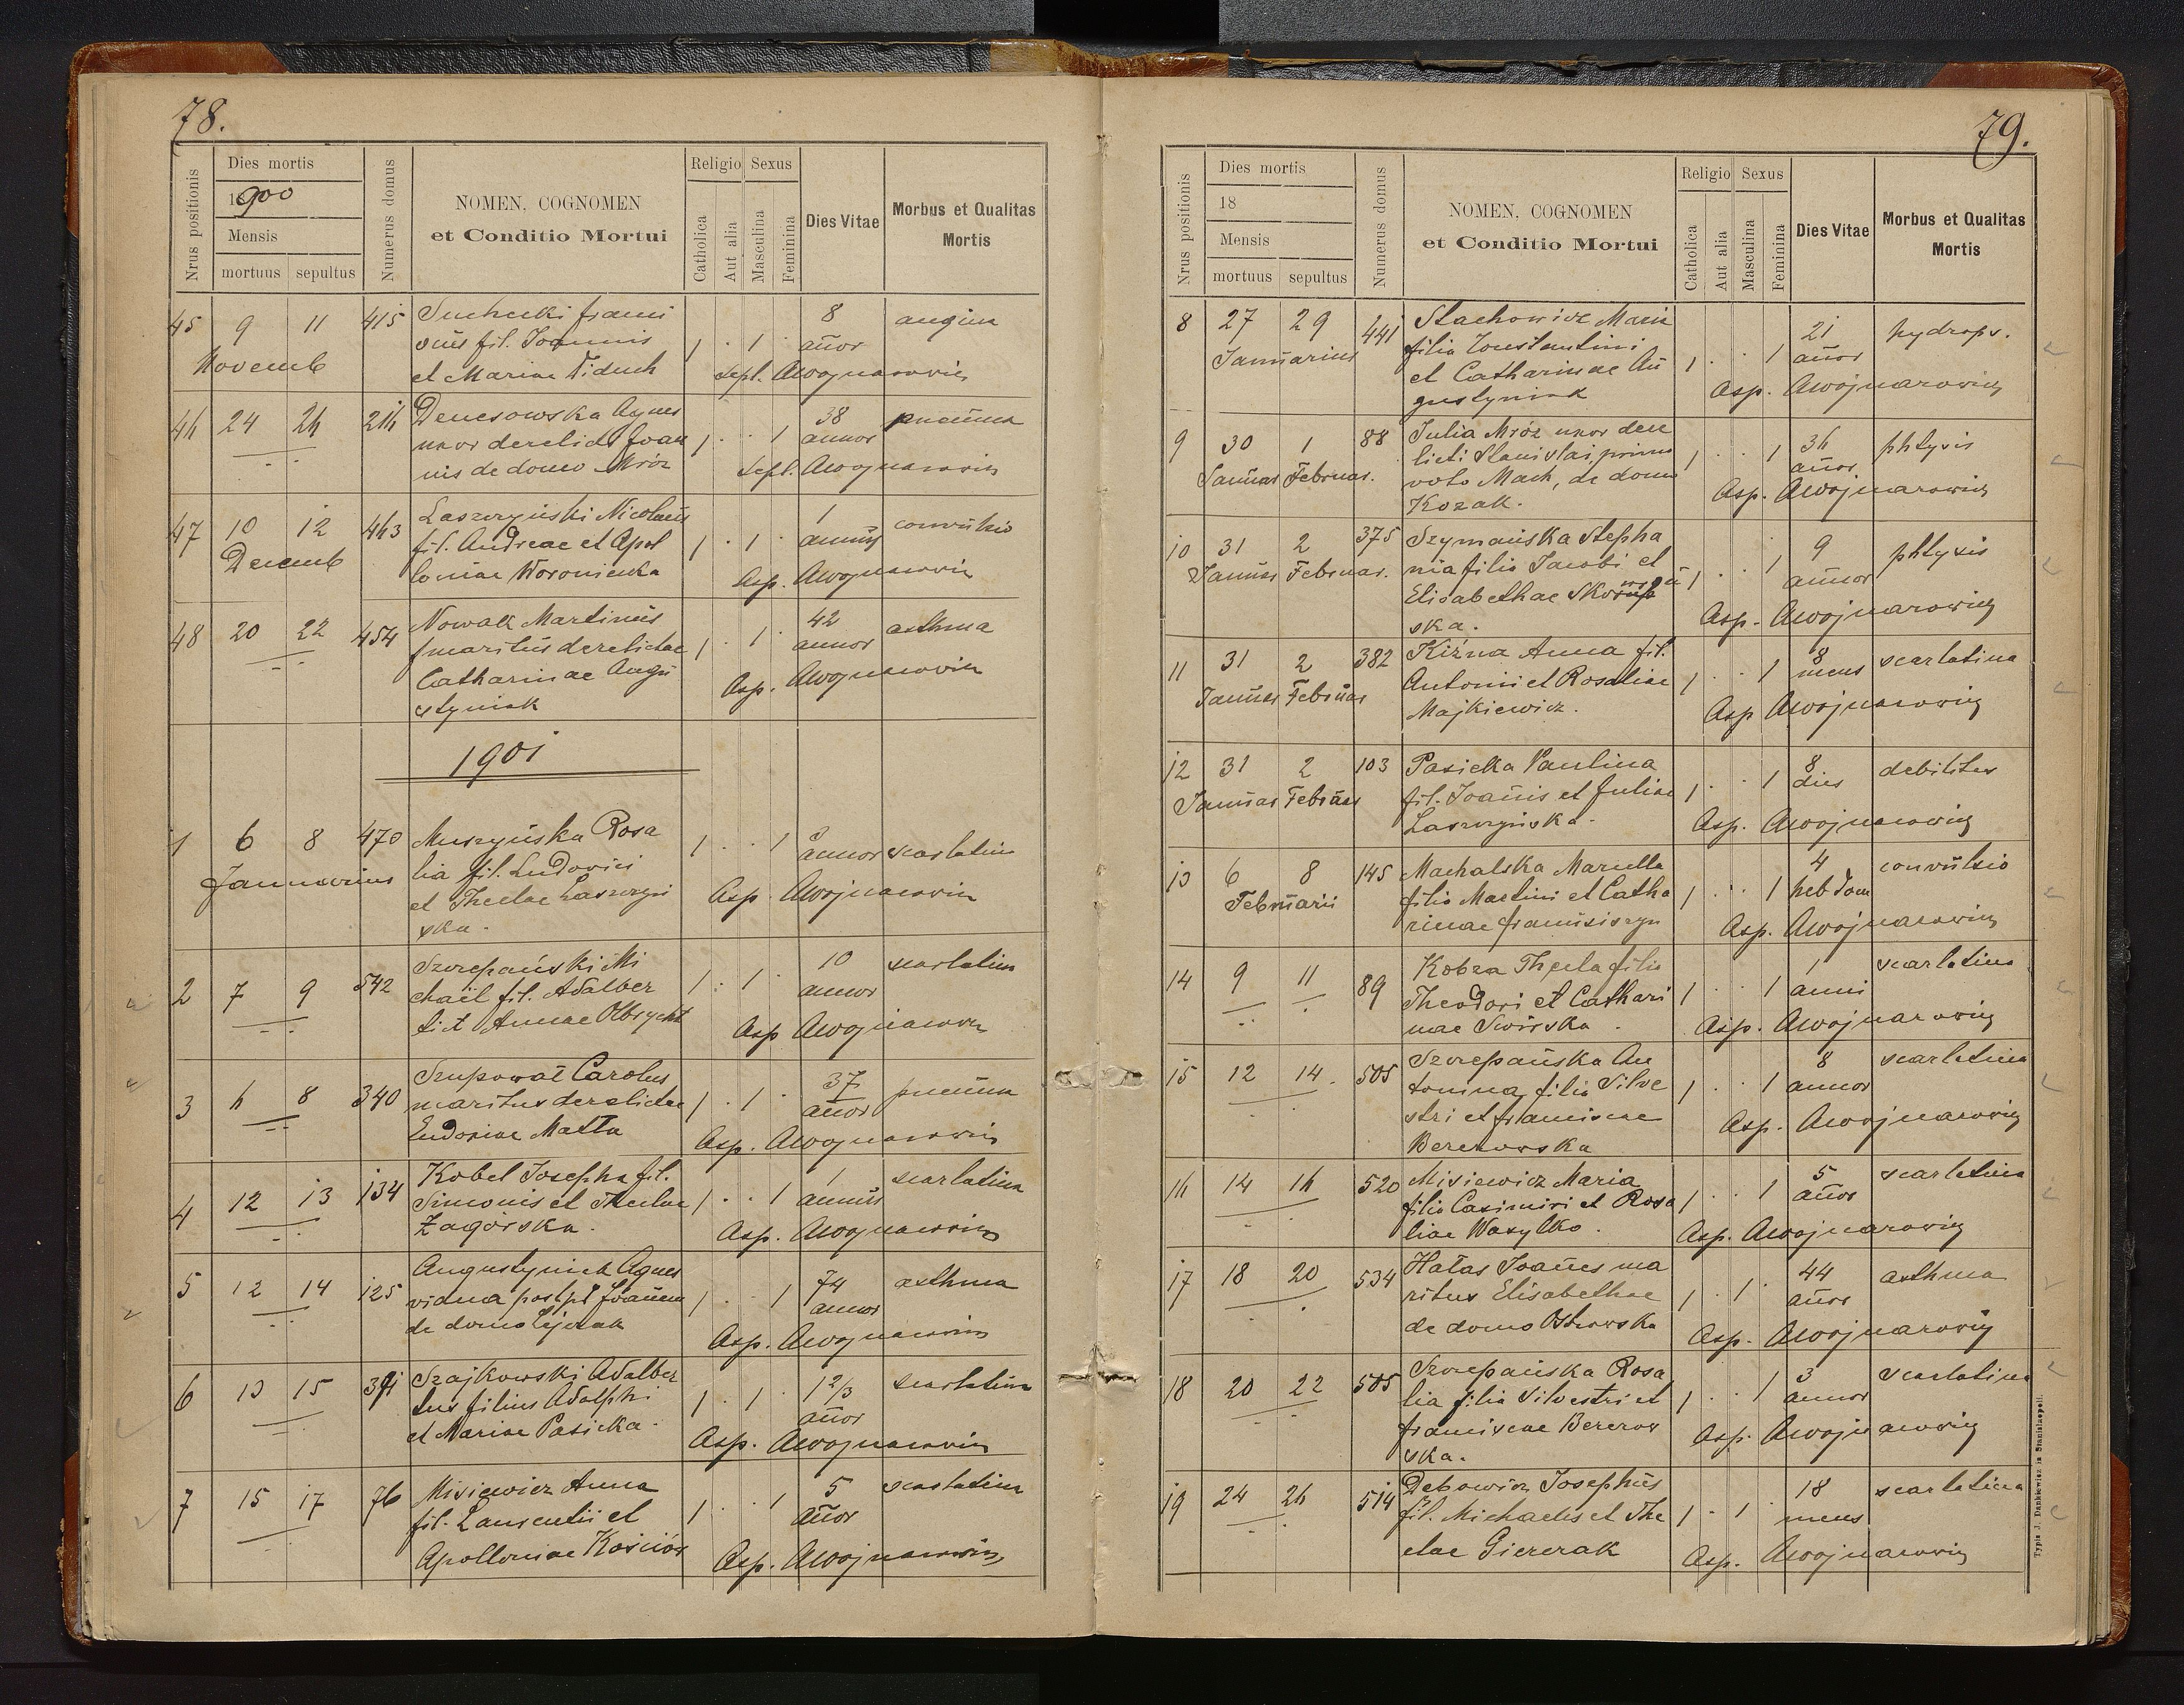 78.
Nrus positionis
Dies mortis
1900
Mensis
mortuus sepultus
Numerus domus
NOMEN, COGNOMEN
et Conditio Mortui
Religio Sexus
Catholica
Aut alia
Masculina
Feminina
Dies Vitae
Morbus et Qualitas
Mortis
45 9 11 415
Novemb
fil. Joannis
et Mariae Tiduch
1 1
8
añor
angina
sept.
46 24 26 216
Agnes
uxor derelicti Joan
nis de domo Mróz
1 1
38
annor
pneuma
sept.
47 10 12 463
Decemb
Laszczyński Nicolaus
fil. Andreae et Apol
loniae Woroniecka
1 1
1
annus
convulsio
Asp.
48 20 22 454
Nowak Martinus
maritus derelictae
Catharinae Augu
styniak
1 1
42
annor
asthma
Asp.
1901
1 6 8 470
Januarius
Muszyńska Rosa
lia fil. Ludovici
et Theclae Laszczyń
ska.
1 1
3
annor scarlatina
Asp
2 7 9 542
Szczepański Mi
chaël fil. Adalber
ti et Annae Olbrycht
1 1
10
annor
scarlatina
Asp
3 6 8 340
Carolus
maritus derelictae
Eudoxiae Matta
1 1
37
añor
pneuma
Asp.
4 12 13 134
Kobel Josepha fil.
Simonis et Theclae
Zagórska.
1 1
1
annus
scarlatina
Asp.
5 12 14 125
Augustyniak Agnes
vidua post Joannem
de domo
1 1
74
annor
asthma
Asp.
6 13 15 391
Szajkowski Adalber
tus filius Adolphi
et Mariae Pasicka.
1 1
1 2/3
añor
scarlatina
Asp.
7 15 17 76
Misiewicz Anna
fil. Laurentii et
Apolloniae Kościów
1 1
5
añor
scarlatina
Asp.
79.
Nrus positionis
Dies mortis
18
Mensis
mortuus sepultus
Numerus domus
NOMEN, COGNOMEN
et Conditio Mortui
Religio Sexus
Catholica
Aut alia
Masculina
Feminina
Dies Vitae
Morbus et Qualitas
Mortis
8 27 29 441
Januarius
Stachowicz Maria
filia Constantini
et Catharinae Au
gustyniak
1 1
21
añor
hydrops.
Asp. AWojnarowicz
9 30 1 88
Januar Februar.
Julia Mróz uxor dere
licti Stanislai primo
voto Mach, de domo
Kozak.
1 1
36
añor
phtysis
Asp. AWojnarowicz
10 31 2 375
Januar Februar.
Szymańska Stepha
nia filia Jacobi et
Elisabethae
ska.
1 1
9
annor
phtysis
Asp. AWojnarowicz
11 31 2 382
Januar Februar
Kiźna Anna fil.
Antonii et Rosaliae
Majkiewicz.
1 1
8
mens
scarlatina
Asp AWojnarowicz
12 31 2 103
Januar Februar
Pasicka Paulina
fil. Joannis et Juliae
Laszczyńska.
1 1
8
dies
debilitas
Asp. AWojnarowicz
13 6 8 145
Februarii
Machalska Marcella
filia Martini et Catha
rinae Franciszczyn
1 1
4
hebdom
convulsio
Asp. AWojnarowicz
14 9 11 89
Kobza Thecla filia
Theodori et Cathari
nae Swirska.
1 1
1
anni
scarlatina
Asp. AWojnarowicz
15 12 14. 505
Szczepańska An
tonina filia Silve
stri et Franciscae
Berezowska
1 1
8
annor
scarlatina
Asp. AWojnarowicz
16 14 16 520
Misiewicz Maria
filia Casimiri et Rosa
liae Wasylko.
1 1
5
añor
scarlatina
Asp. AWojnarowicz
17 18 20 534
Hałas Joannes ma
ritus Elisabethae
de domo Ostrowska
1 1
44
añor
asthma
Asp. AWojnarowicz
18 20 22 505
Szczepańska Rosa
lia filia Silvestri et
Franciscae Berezow
ska.
1 1
3
annor
scarlatina
Asp. AWojnarowicz
19 24 26 514
Dębowicz Josephus
fil. Michaelis et The
clae Gierczak
1 1
18
mens
scarlatina
Asp. AWojnarowicz
Typis J. Dankiewicz in Stanislaopoli.